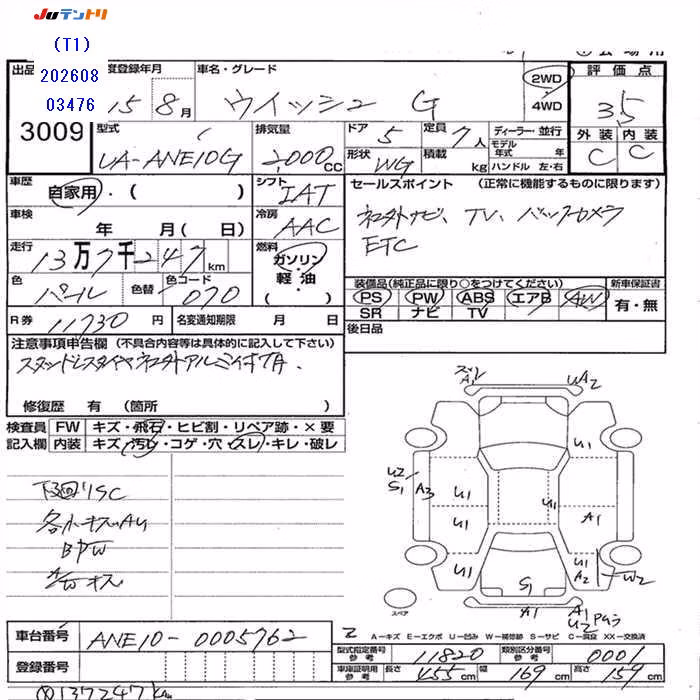 JUテントリ
(T1)
202608
03476
出品
3009
度登録年月
15 8月
車名・グレード
ウイッシュ G
2WD
4WD
評価点
3.5
外装 内装
C C
型式
UA-ANE10G
排気量
2000cc
ドア 5
定員 7人
形状 WG
積載 kg
ディーラー・並行
モデル年式 年
ハンドル 左・右
車歴
自家用・( )
シフト
IAT
セールスポイント (正常に機能するものに限ります)
ナビ、TV、バックカメラ
ETC
車検
年 月( 日)
冷房
AAC
走行
13万7千247km
燃料
ガソリン・軽油・
色
パール
色替
色コード
070
装備品(純正品に限り○をつけてください)
PS PW ABS エアB AW
SR ナビ TV
新車保証書
有・無
R券 11730円
名変通知期限 月 日
後日品
注意事項申告欄 (不具合内容等は具体的に記入して下さい)
修復歴 有 (箇所 )
検査員記入欄
FW キズ・飛石・ヒビ割・リペア跡・×要
内装 キズ・汚レ・コゲ・穴・スレ・キレ・破レ
下回りSC
各小キズAU
BPW
キズ
A1
UA2
U2
S1
A3
U1
U1
U1
U1
A1
U1
A2
W2
S1
A1
A1
U2
スペア
A-キズ E-エクボ U-凹み W-補修跡 S-サビ C-腐食 XX-交換済
車台番号 ANE10-0005762
登録番号
型式指定番号 参考 11820
類別区分番号 参考 0001
車庫証明用 参考 長さ 455cm 幅 169cm 高さ 159cm
137247km